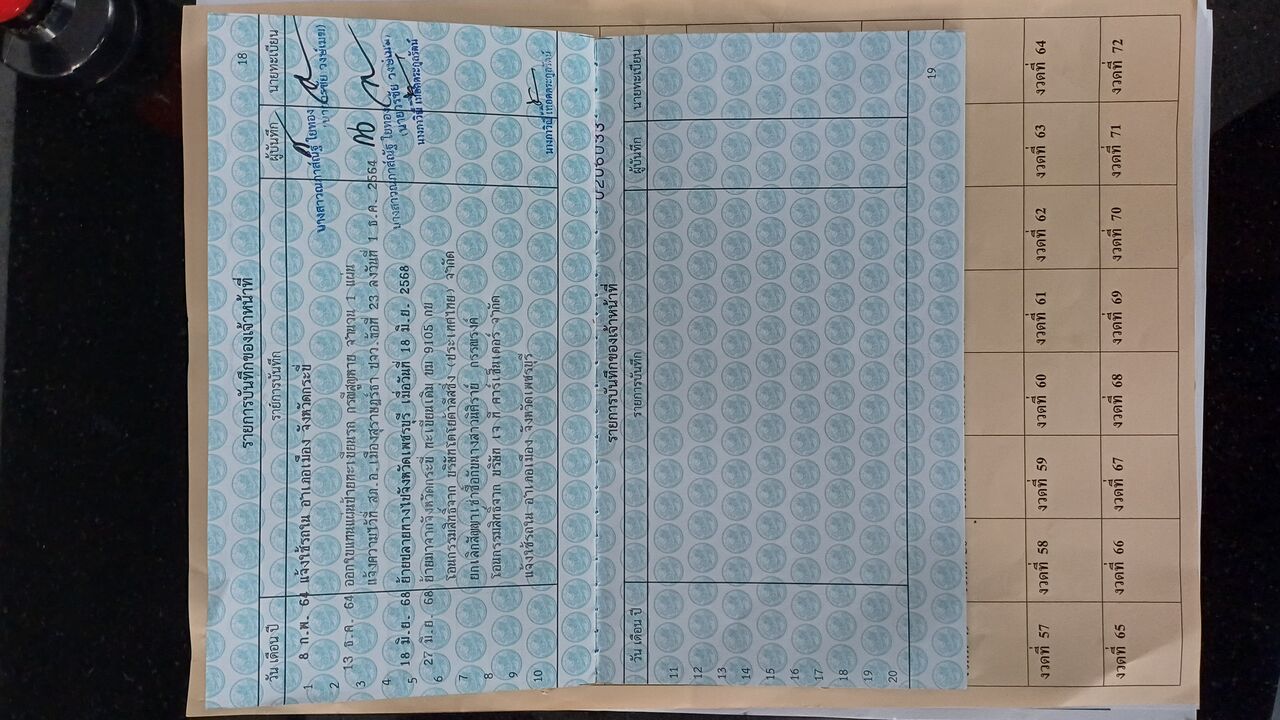 18
รายการบันทึกของเจ้าหน้าที่
วัน เดือน ปี รายการบันทึก ผู้บันทึก นายทะเบียน
1 8 ก.พ. 64 แจ้งใช้รถใน อำเภอเมือง จังหวัดกระบี่
2 13 ธ.ค. 64 ออกใบแทนแผ่นป้ายทะเบียนรถ กรณีสูญหาย จำนวน 1 แผ่น
3 แจ้งความไว้ที่ สภ.อ.เมืองสุราษฎร์ธา ปจว.ข้อที่ 23 ลงวันที่ 1 ธ.ค. 2564
4 18 มิ.ย. 68 ย้ายปลายทางไปจังหวัดเพชรบุรี เมื่อวันที่ 18 มิ.ย. 2568
5 27 มิ.ย. 68 ย้ายมาจากจังหวัดกระบี่ ทะเบียนเดิม ขม 9105 กบ
6 โอนกรรมสิทธิ์จาก บริษัทโตโยต้าลีสซิ่ง (ประเทศไทย) จำกัด
7 ยกเลิกสัญญาเช่าซื้อกับนางสาวนิศราย์ กรรณรงค์
8 โอนกรรมสิทธิ์จาก บริษัท เจ ที คาร์เซ็นเตอร์ จำกัด
9 แจ้งใช้รถใน อำเภอเมือง จังหวัดเพชรบุรี
10
นางสาวณภาสณัฐ ใยทอง
(นายวรชัย วงษ์เมฆ)
นางสาวณภาสณัฐ ใยทอง
(นายวรชัย วงษ์เมฆ)
รายการบันทึกของเจ้าหน้าที่
วัน เดือน ปี รายการบันทึก ผู้บันทึก นายทะเบียน
11
12
13
14
15
16
17
18
19
20
19
งวดที่ 57 งวดที่ 58 งวดที่ 59 งวดที่ 60 งวดที่ 61 งวดที่ 62 งวดที่ 63 งวดที่ 64
งวดที่ 65 งวดที่ 66 งวดที่ 67 งวดที่ 68 งวดที่ 69 งวดที่ 70 งวดที่ 71 งวดที่ 72